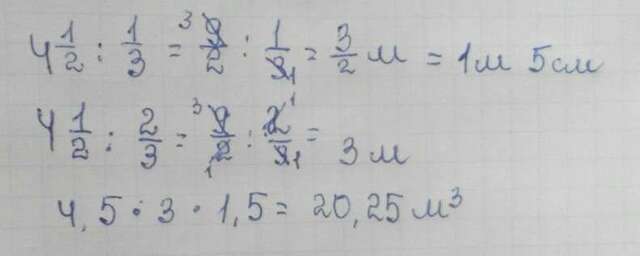 4 1/2 : 1/3 = ³9/2 : 1/3₁ = 3/2 м = 1м 5см
4 1/2 : 2/3 = ³9/₁2 : 2¹/3₁ = 3 м
4,5 · 3 · 1,5 = 20,25 м³